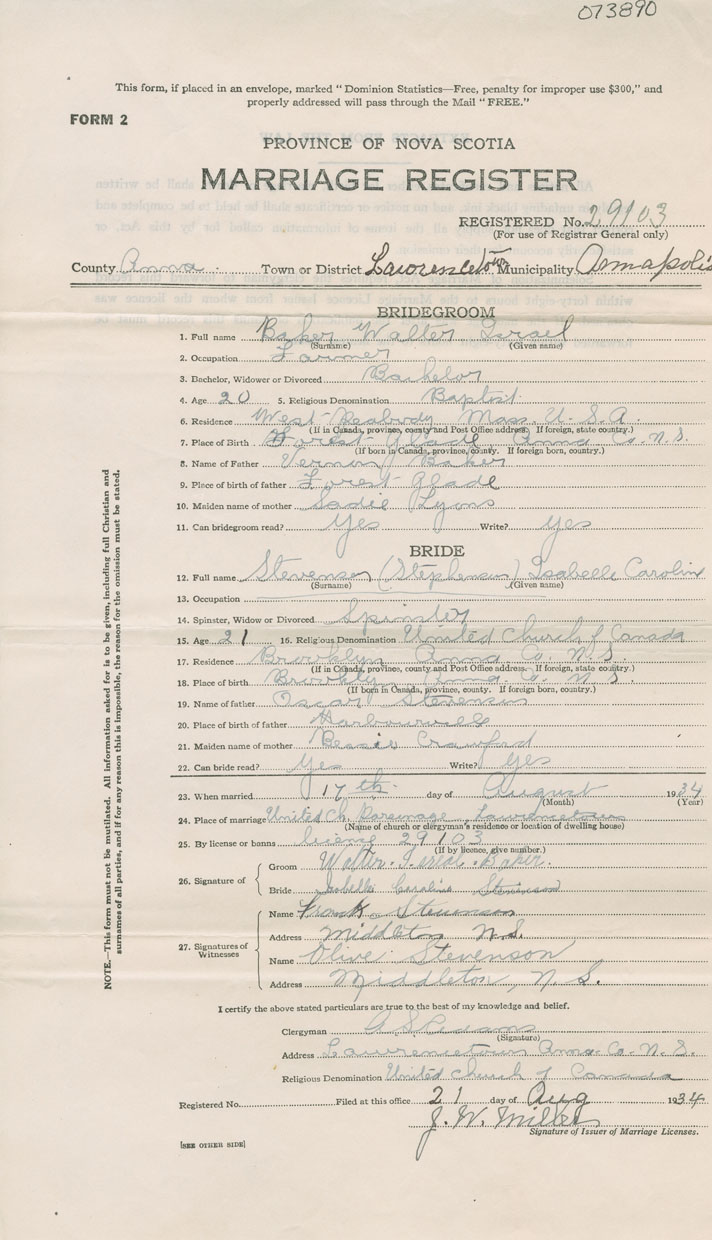 073890
This form, if placed in an envelope, marked "Dominion Statistics—Free, penalty for improper use $300," and
properly addressed will pass through the Mail "FREE."
FORM 2
PROVINCE OF NOVA SCOTIA
MARRIAGE REGISTER
REGISTERED No. 29103
(For use of Registrar General only)
County Anna Town or District Lawrencetown Municipality Annapolis
BRIDEGROOM
1. Full name Baker Walter Israel
(Surname) (Given name)
2. Occupation Farmer
3. Bachelor, Widower or Divorced Bachelor
4. Age 20 5. Religious Denomination Baptist
6. Residence West Peabody Mass. U.S.A.
(If in Canada, province, county and Post Office address. If foreign, state country.)
7. Place of Birth Forest Glade Anna Co. N.S.
(If born in Canada, province, county. If foreign born, country.)
8. Name of Father Vernon Baker
9. Place of birth of father Forest Glade
10. Maiden name of mother Sadie Lyons
11. Can bridegroom read? Yes Write? Yes
BRIDE
12. Full name Stevenson (Stephenson) Isabelle Caroline
(Surname) (Given name)
13. Occupation
14. Spinster, Widow or Divorced Spinster
15. Age 21 16. Religious Denomination United Church of Canada
17. Residence Brooklyn Anna Co. N.S.
(If in Canada, province, county and Post Office address. If foreign, state country.)
18. Place of birth Brooklyn Anna. Co. N.S.
(If born in Canada, province, county. If foreign born, country.)
19. Name of father Oscar Stevenson
20. Place of birth of father Harbourville
21. Maiden name of mother Bessie Crawford
22. Can bride read? Yes Write? Yes
23. When married 17th day of August 1934
(Month) (Year)
24. Place of marriage United Ch. Parsonage, Lawrencetown
(Name of church or clergyman's residence or location of dwelling house)
25. By license or banns license 29103
(If by licence, give number.)
26. Signature of
Groom Walter Baker.
Bride Isabelle Caroline Stevenson
27. Signatures of Witnesses
Name Frank Stevenson
Address Middleton N.S.
Name Olive Stevenson
Address Middleton, N.S.
I certify the above stated particulars are true to the best of my knowledge and belief.
Clergyman
(Signature)
Address Lawrencetown Anna. Co. N.S.
Religious Denomination United Church of Canada
Registered No. Filed at this office 21 day of Aug 1934
J. W. Miller
Signature of Issuer of Marriage Licenses.
[SEE OTHER SIDE]
NOTE.—This form must not be mutilated. All information asked for is to be given, including full Christian and
surnames of all parties, and if for any reason this is impossible, the reason for the omission must be stated.